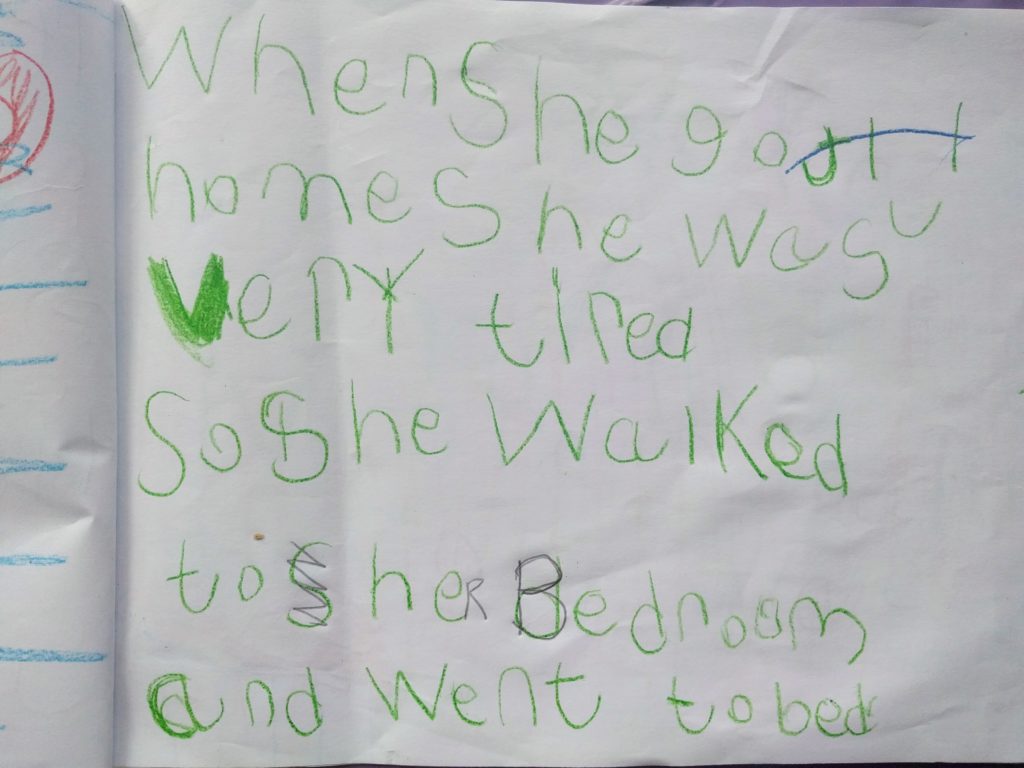 When she got
home she was
very tired
So she walked
to her Bedroom
and went to bed